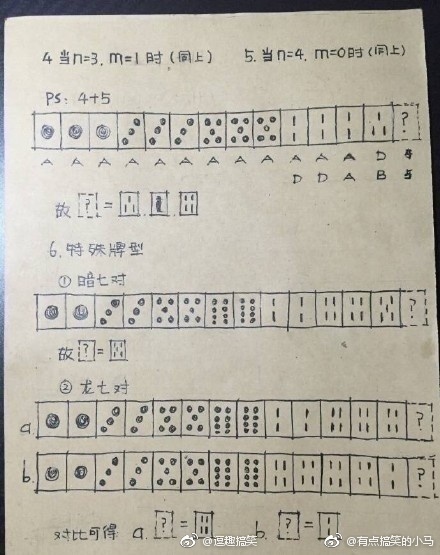 4 当n=3, m=1时(同上) 5. 当n=4, m=0时(同上)
PS: 4+5
?
A A A A A A A A A A A A D 4
D D A B 5
故 ? =
6. 特殊牌型
① 暗七对
?
故 ? =
② 龙七对
a. ?
b. ?
对比可得 a. ? = b. ? =
@逗趣搞笑 @有点搞笑的小马